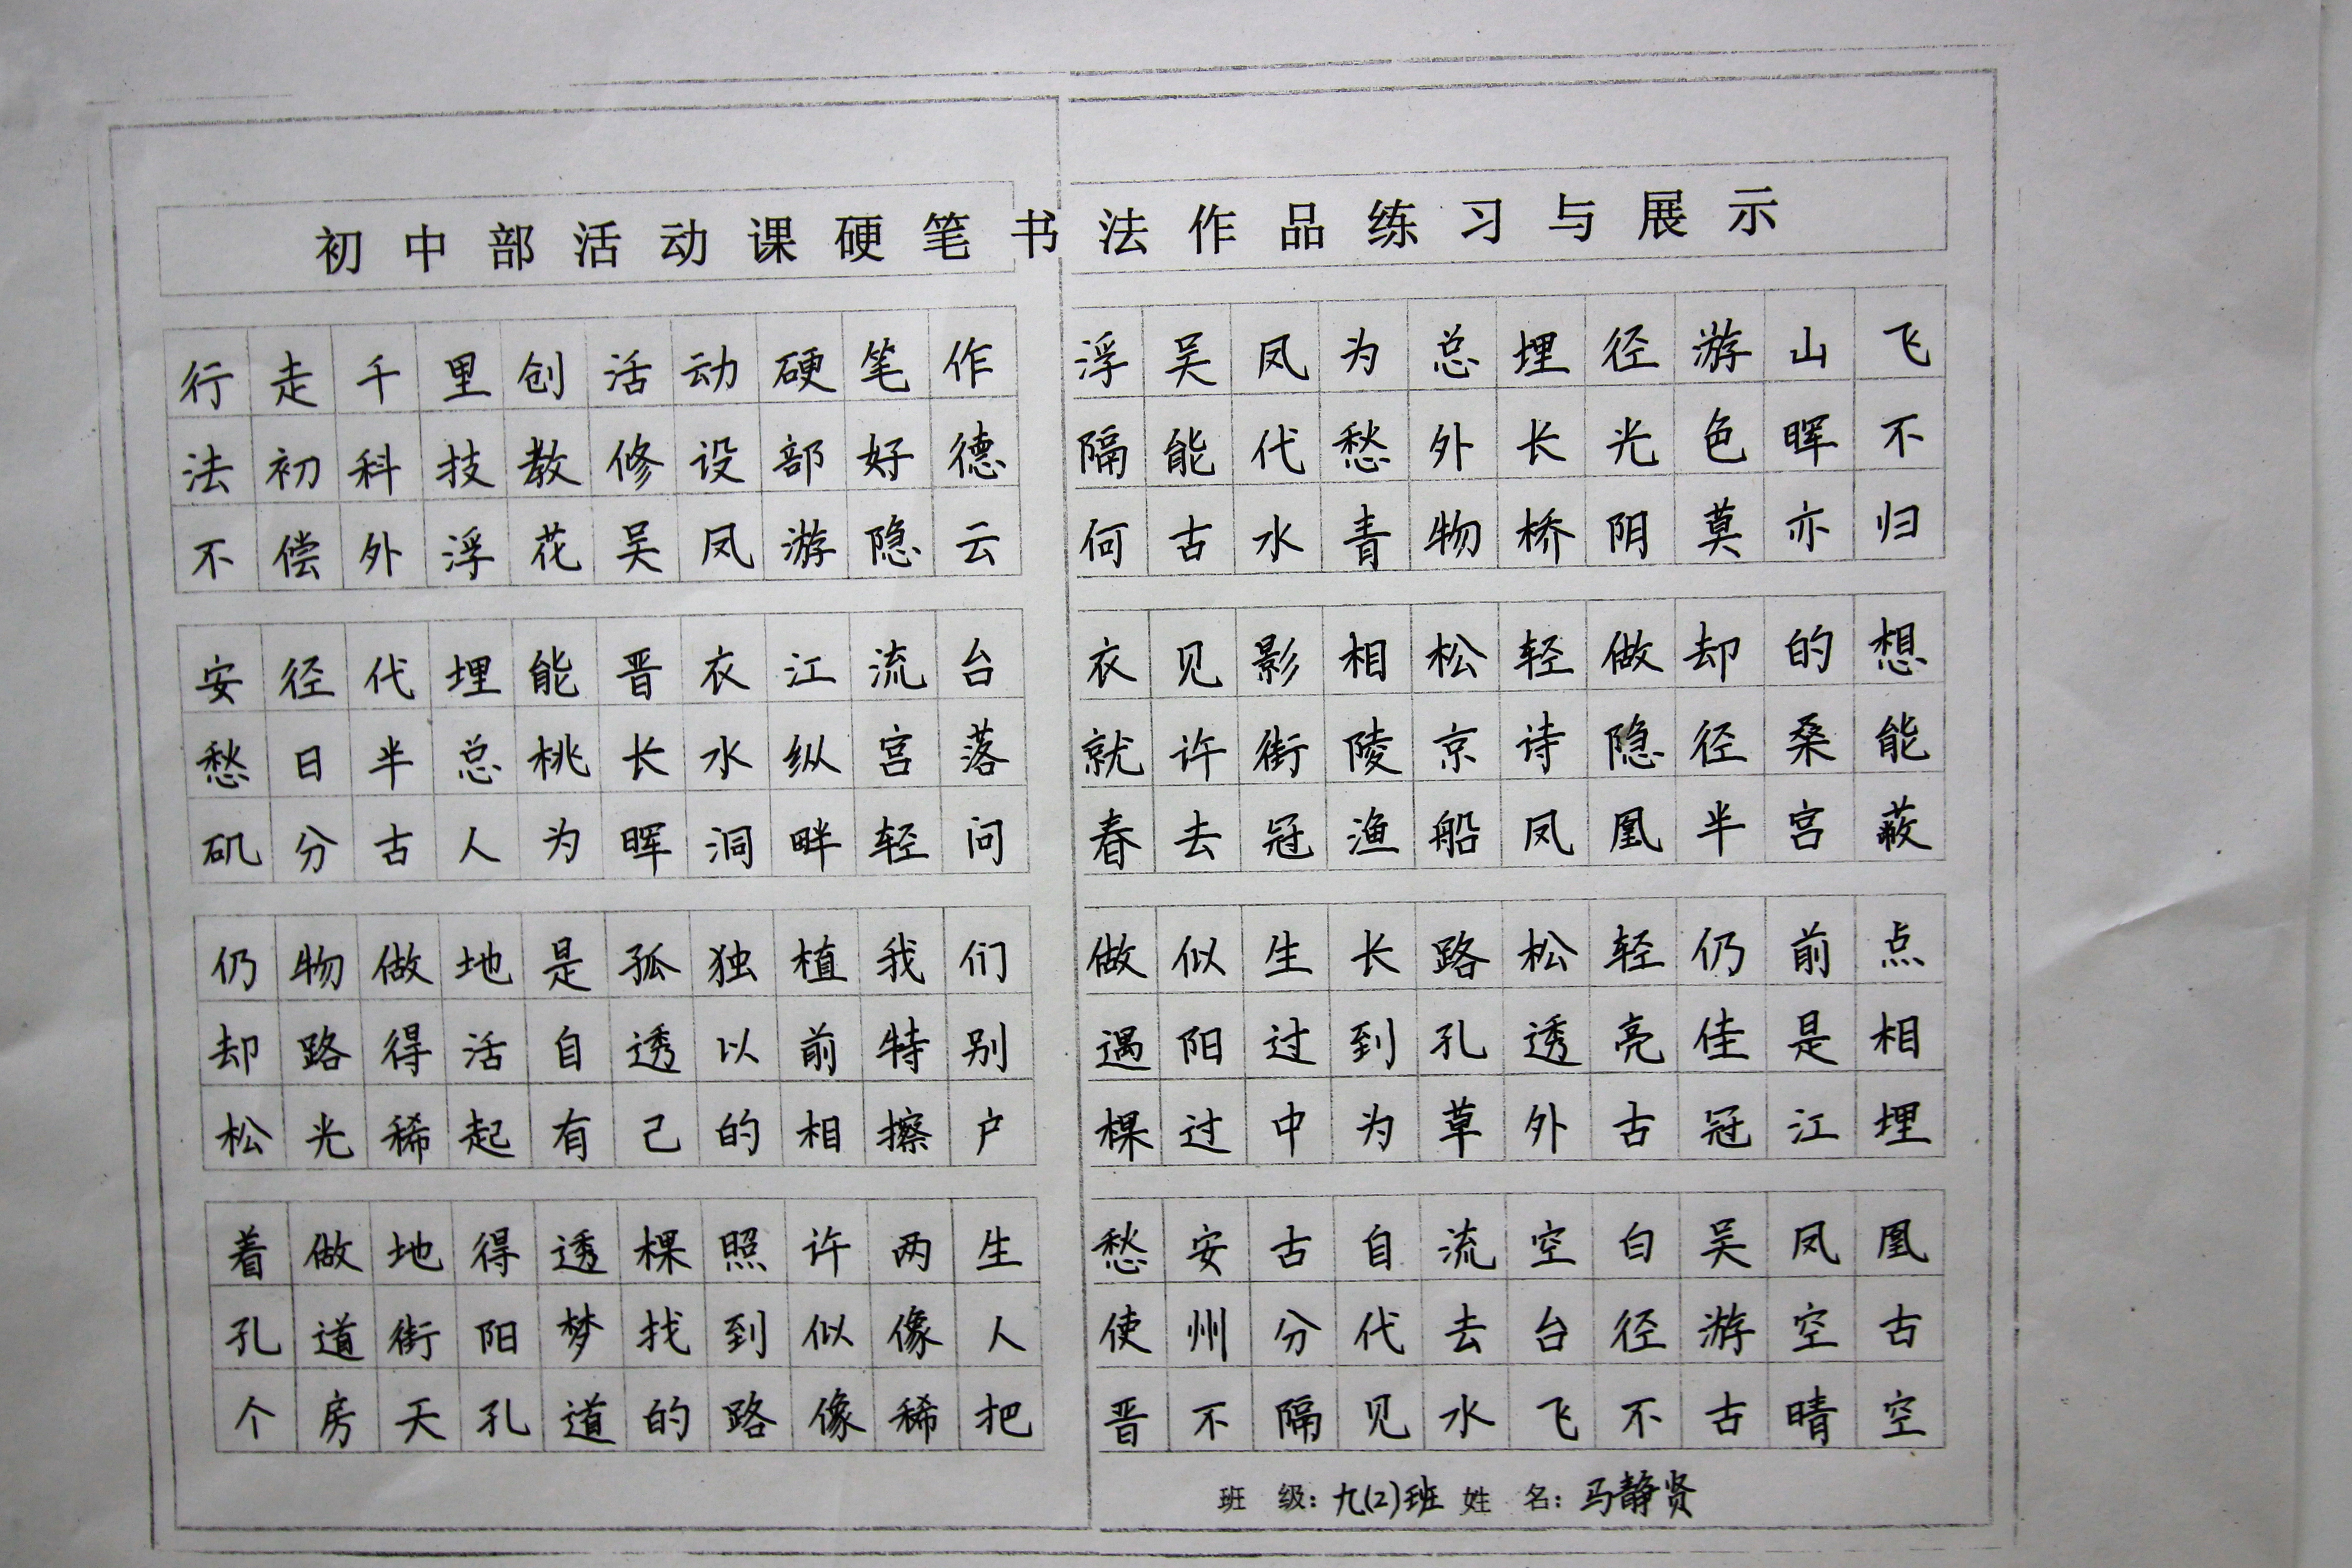 初中部活动课硬笔书法作品练习与展示
行走千里创活动硬笔作
法初科技教修设部好德
不偿外浮花吴凤游隐云
安径代埋能晋衣江流台
愁日半总桃长水纵宫落
矶分古人为晖洞畔轻问
仍物做地是孤独植我们
却路得活自透以前特别
松光稀起有己的相擦户
着做地得透棵照许两生
孔道街阳梦找到似像人
个房天孔道的路像稀把
浮吴凤为总埋径游山飞
隔能代愁外长光色晖不
何古水青物桥阴莫亦归
衣见影相松轻做却的想
就许街陵京诗隐径桑能
春去冠渔船凤凰半宫蔽
做似生长路松轻仍前点
遇阳过到孔透亮佳是相
棵过中为草外古冠江埋
愁安古自流空白吴凤凰
使州分代去台径游空古
晋不隔见水飞不古晴空
班级:九(2)班 姓名:马静贤